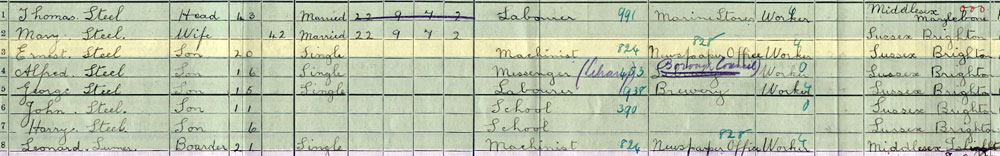 1 Thomas. Steel Head 43 Married 22 9 7 2 Labourer 991 Marine Stores Worker Middlesex Marylebone
2 Mary. Steel. Wife 42 Married 22 9 7 2 Sussex Brighton
3 Ernest. Steel Son 20 Single Machinist 824 Newspaper Office 828 Worker Sussex Brighton
4 Alfred. Steel Son 16 Single Messenger (Library) Borough Council Worker Sussex Brighton
5 George Steel Son 15 Single Labourer 938 Brewery Worker Sussex Brighton
6 John. Steel. Son 11 School 390 Sussex Brighton
7 Harry. Steel Son 6 School Sussex Brighton
8 Leonard. Boarder 21 Single Machinist 824 Newspaper Office 828 Worker Middlesex